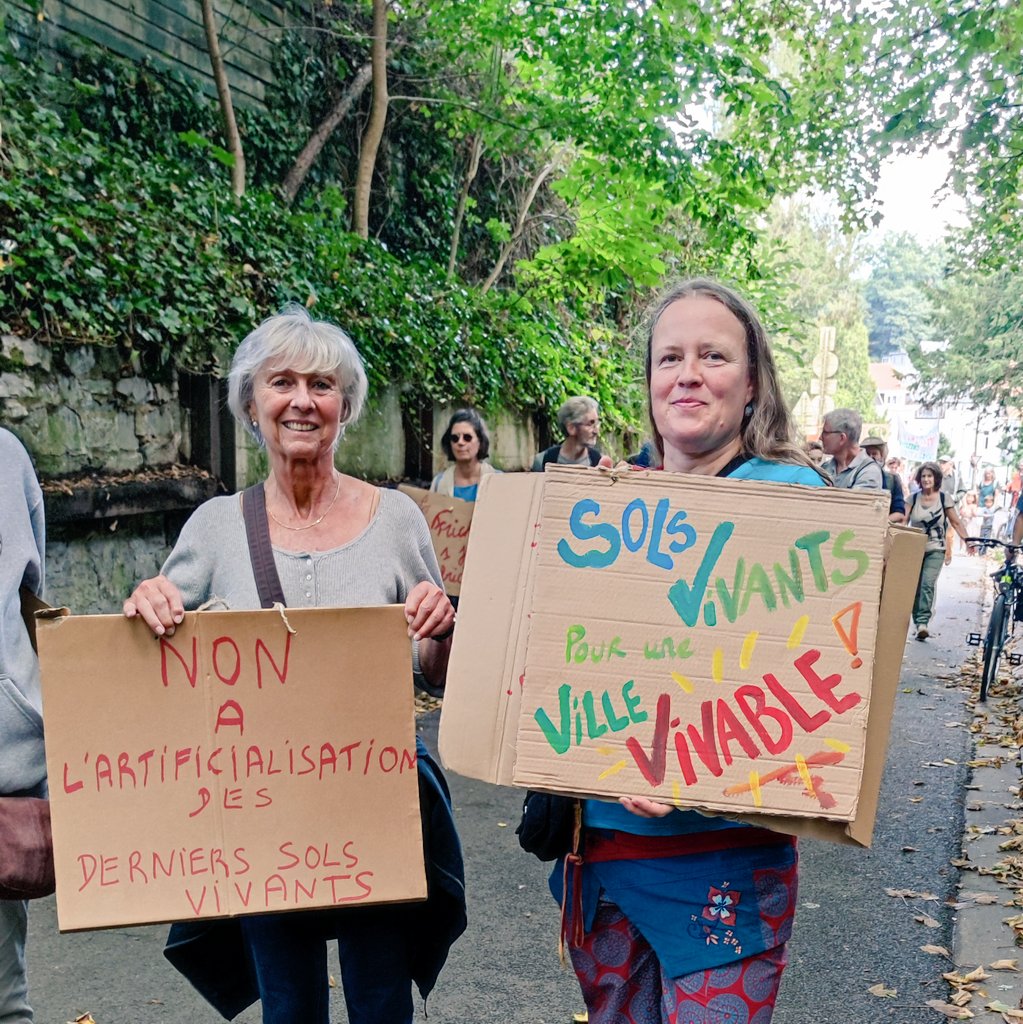 NON
A
L'ARTIFICIALISATION
DES
DERNIERS SOLS
VIVANTS
SOLS
ViVANTS
POUR UNE
ViLLE
ViVABLE!